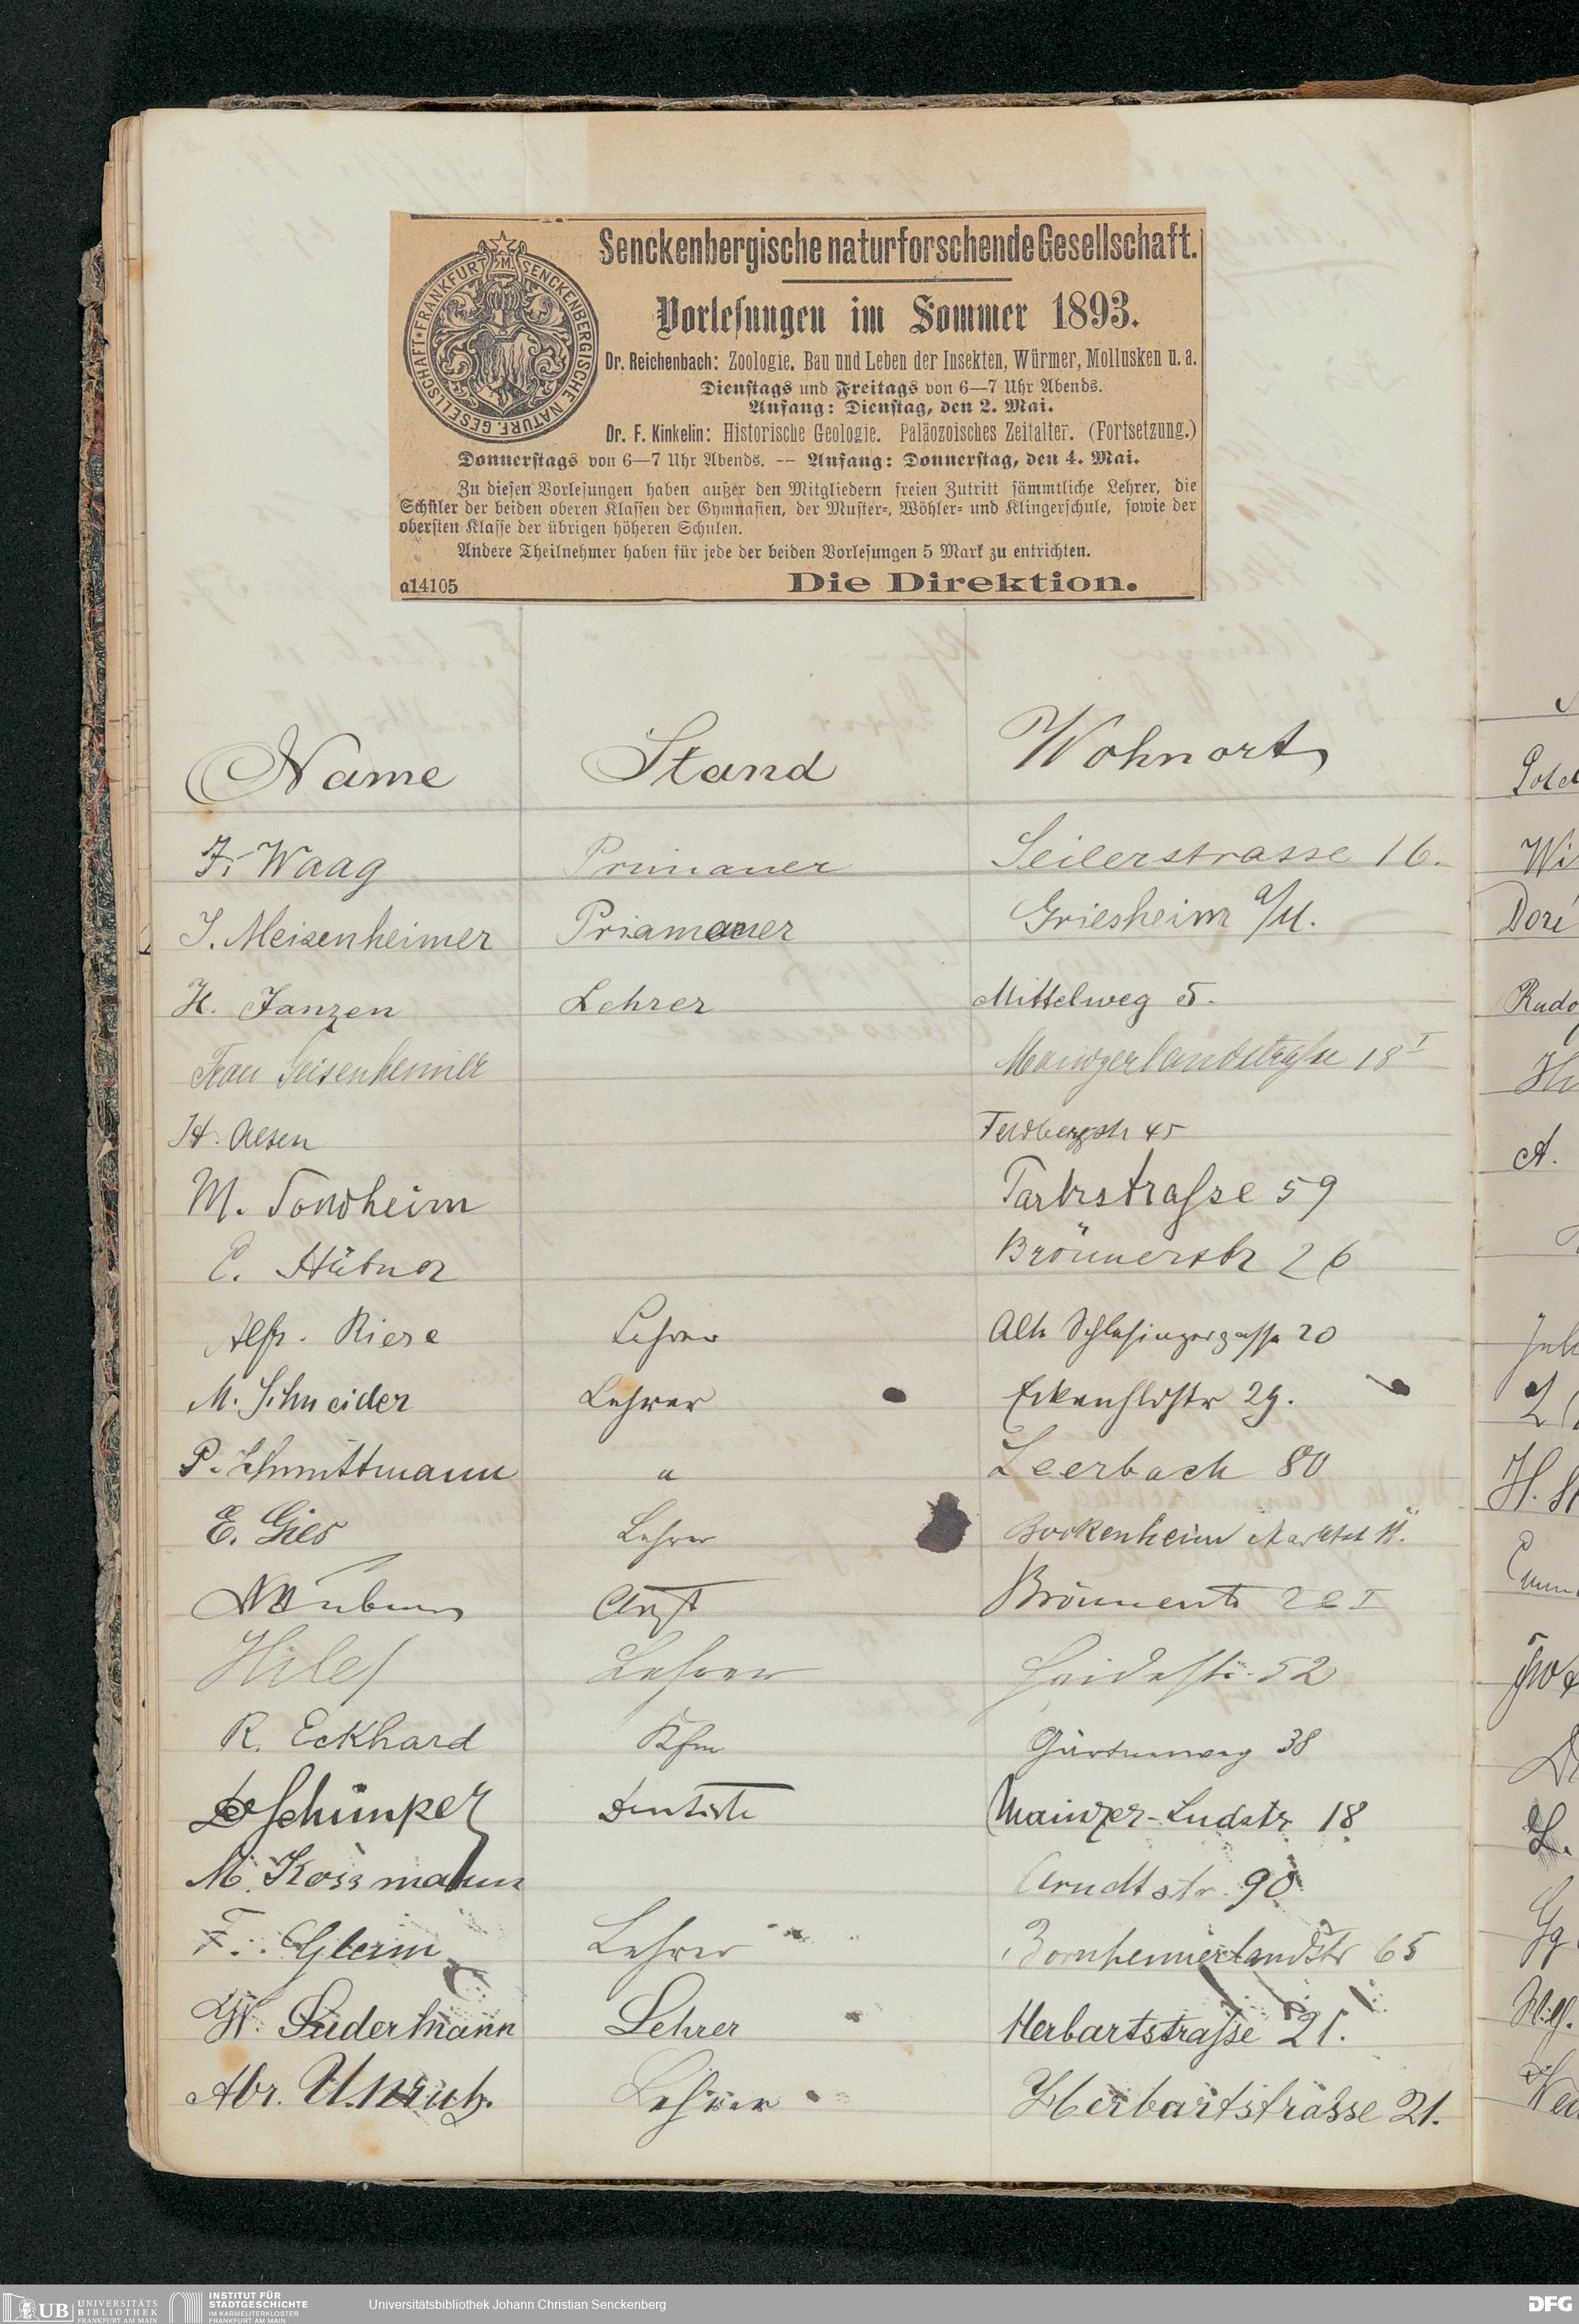 Senckenbergische naturforschende Gesellschaft.
FRANKFURT A M SENCKENBERGISCHE NATURF. GESELLSCHAFT
Vorlesungen im Sommer 1893.
Dr. Reichenbach: Zoologie. Bau und Leben der Insekten, Würmer, Mollusken u. a.
Dienstags und Freitags von 6—7 Uhr Abends.
Anfang: Dienstag, den 2. Mai.
Dr. F. Kinkelin: Historische Geologie. Paläozoisches Zeitalter. (Fortsetzung.)
Donnerstags von 6—7 Uhr Abends. -- Anfang: Donnerstag, den 4. Mai.
Zu diesen Vorlesungen haben außer den Mitgliedern freien Zutritt sämmtliche Lehrer, die
Schüler der beiden oberen Klassen der Gymnasien, der Muster-, Wöhler- und Klingerschule, sowie der
obersten Klasse der übrigen höheren Schulen.
Andere Theilnehmer haben für jede der beiden Vorlesungen 5 Mark zu entrichten.
a14105 Die Direktion.
Name Stand Wohnort
F. Waag Primaner Seilerstrasse 16.
J. Meisenheimer Priamaner Griesheim a/M.
H. Janzen Lehrer Mittelweg 5.
Frau Geisenheimer Mainzerlandstraße 18 I
H. Alsen Feldbergstr 45
M. Sondheim 59
E. Hübner Brönnerstr 26
Alfr. Riese Lehrer Alte Schlesingergasse 20
M. Schneider Lehrer 29.
P. Schmittmann " Leerbach 80
E. Gies Lehrer Bockenheim
Arzt
Lehrer Heidestr. 52
R. Eckhard Kfm Gärtnerweg 38
Schimper Dentiste Mainzer-Lndstr. 18
M. Kossmann Arndtstr. 90
F. Lehrer Bornheimerlandstr 65
W. Sudermann Lehrer Herbartstraße 21.
Abr. Unruh. Lehrer Herbartstrasse 21.
UB UNIVERSITÄTS BIBLIOTHEK FRANKFURT AM MAIN
INSTITUT FÜR STADTGESCHICHTE IM KARMELITERKLOSTER FRANKFURT AM MAIN
Universitätsbibliothek Johann Christian Senckenberg
DFG